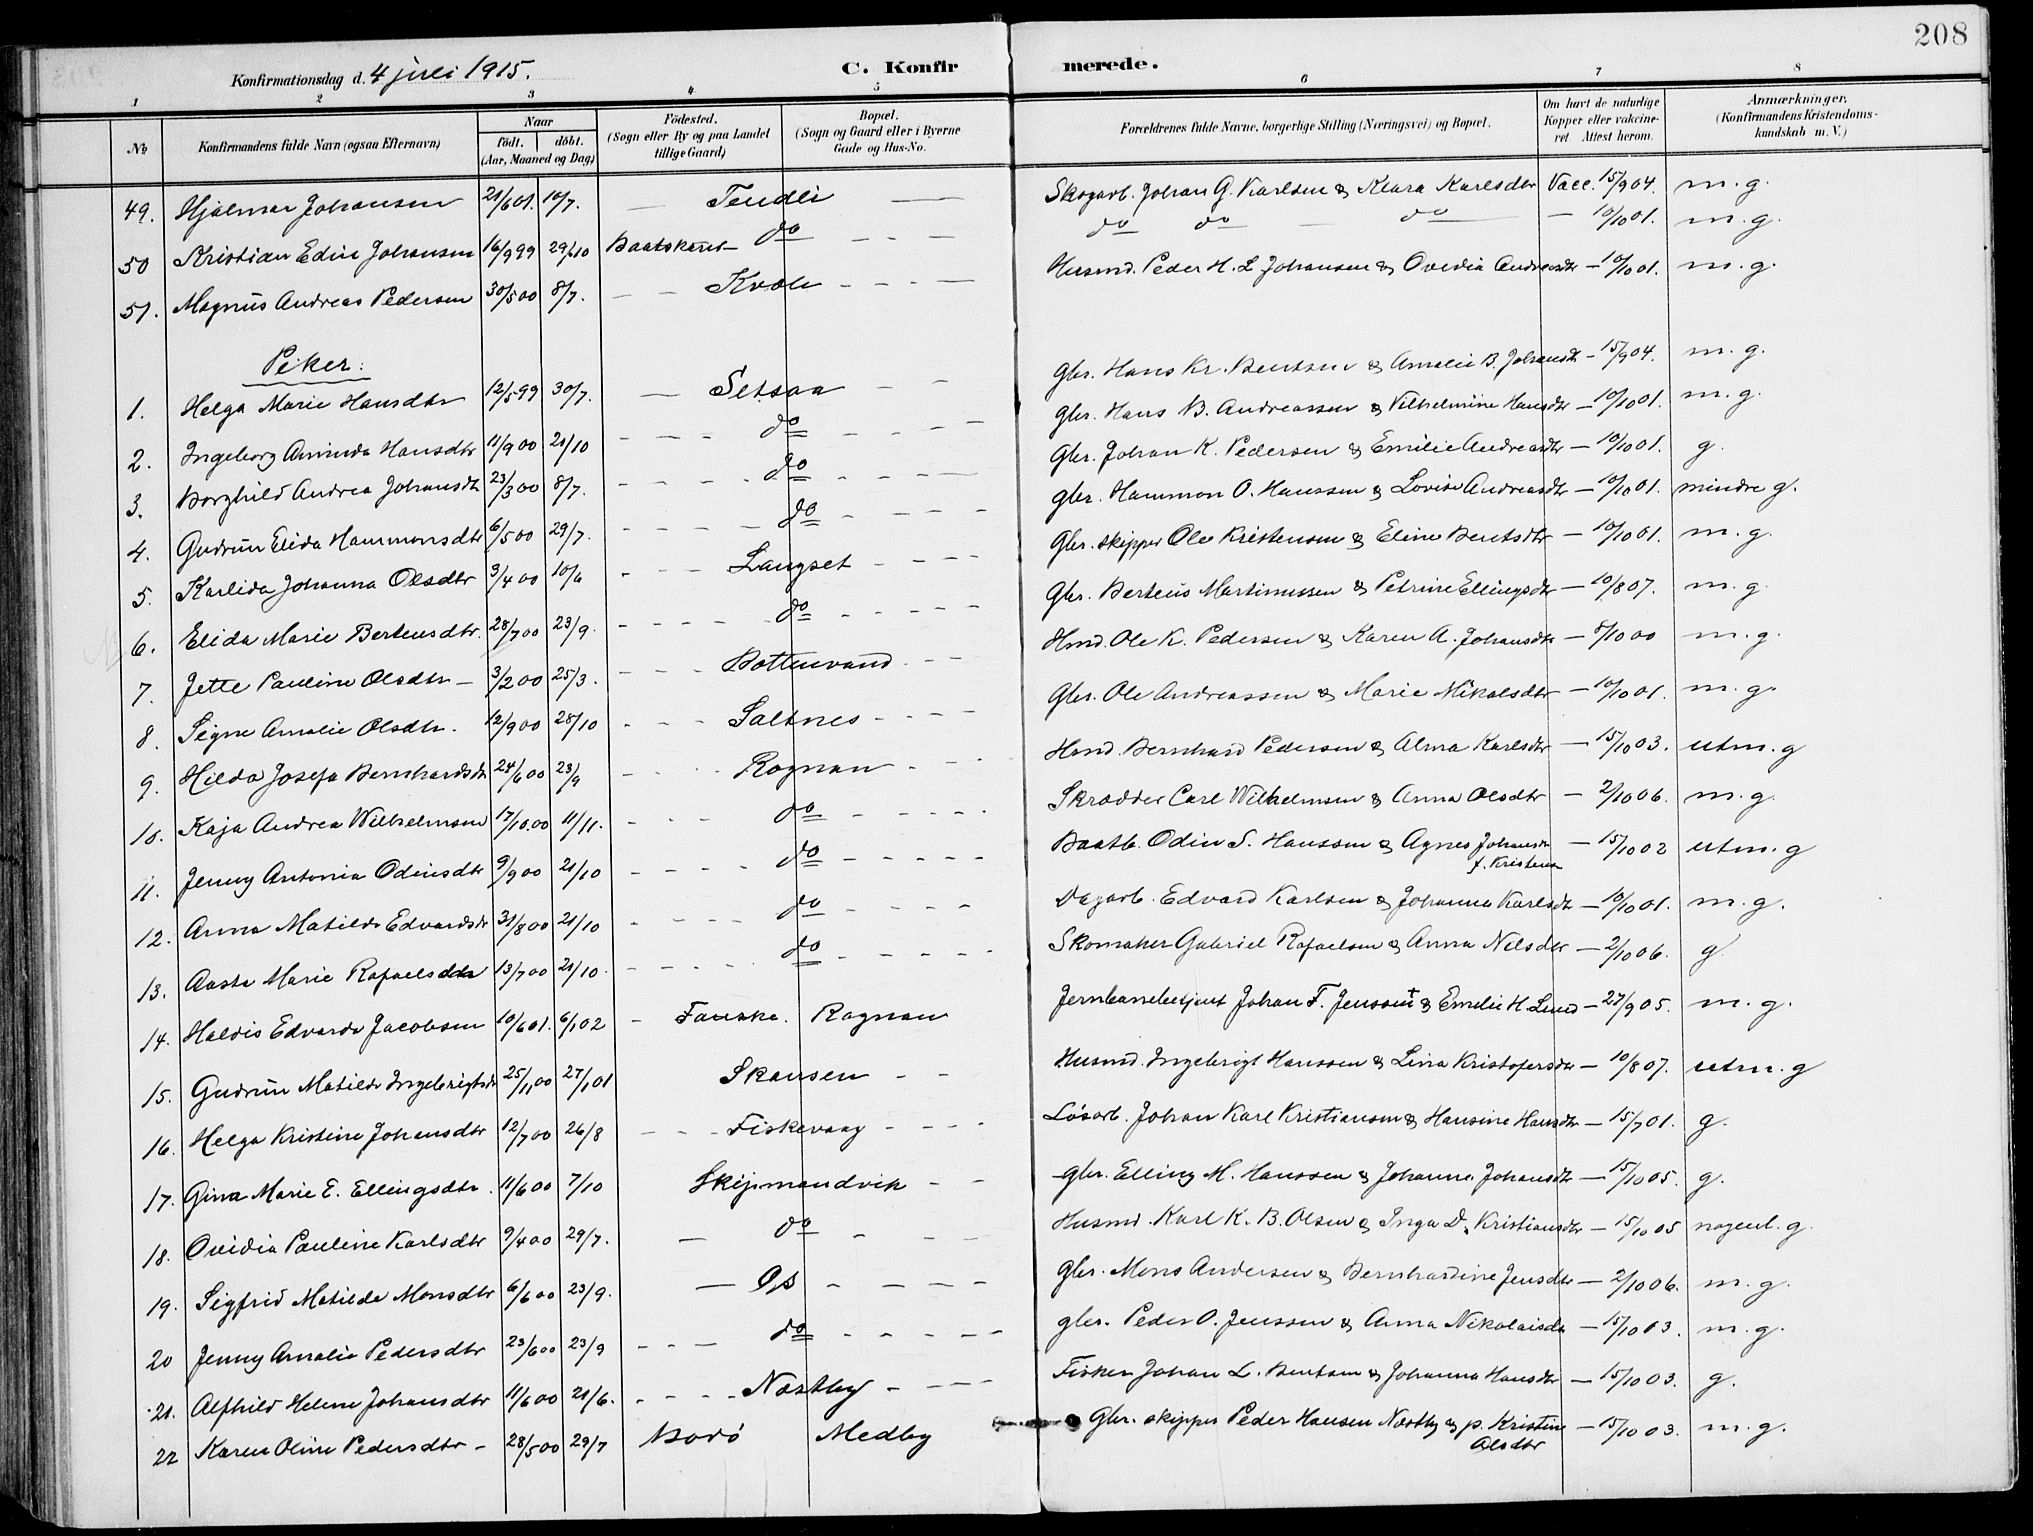 208
Konfirmationsdag d. 4 juli 1915.
C. Konfirmerede.
1 2 3 4 5 6 7 8
No
Konfirmandens fulde Navn (ogsaa Efternavn)
Naar
födt. döbt.
(Aar, Maaned og Dag)
Födested.
(Sogn eller By og paa Landet
tillige Gaard)
Bopæl.
(Sogn og Gaard eller i Byerne
Gade og Hus-No.
Forældrenes fulde Navne, borgerlige Stilling (Næringsvei) og Bopæl.
Om havt de naturlige
Kopper eller vakcine-
ret. Attest herom.
Anmærkninger.
(Konfirmandens Kristendoms-
kundskab m. V.)
49. Hjalmar Johansen 21/6 01. 10/7. — Tendli — Skogarb. Johan G. Karlsen & Klara Karlsdtr Vacc. 15/9 04. m. g.
50 Kristian Edin Johansen 16/9 99 29/10 Baatskaret do — do do do — 10/10 01. m. g.
51. Magnus Andreas Pedersen 30/5 00 8/7. — Kvæle — Husmd. Peder H. L Johansen & Ovedia Andreasdtr — 10/10 01. m. g.
Piker:
1. Helga Marie Hansdtr 12/5 99 30/7. — Setsaa — Gbr. Hans Kr. Bentsen & Amalie B. Johansdtr — 15/9 04. m. g.
2. Ingeborg Aminda Hansdtr 11/9 00 21/10 — do — Gbr. Hans B. Andreassen & Vilhelmine Hansdtr — 10/10 01. m. g.
3. Borghild Andrea Johansdtr 23/3 00 8/7. — do — Gbr. Johan K. Pedersen & Emilie Andreasdtr — 10/10 01. g.
4. Gudrun Elida Hammonsdtr 6/5 00 29/7. — do — gbr. Hammon O. Hanssen & Lovise Andreasdtr — 10/10 01. mindre g.
5. Karlida Johanna Olsdtr 3/4 00 10/6 — Langset — Gbr. skipper Ole Kristensen & Eline Bentsdtr — 10/10 01. m. g.
6. Elida Marie Berteusdtr. 28/7 00 23/9. — do — Gbr. Berteus Martinussen & Petrine Ellingsdtr — 10/8 07. m. g
7. Jette Pauline Olsdtr — 3/2 00 25/3. — Bottenvand — Hmd. Ole K. Pedersen & Karen A. Johansdtr — 8/10 00 m. g.
8. Signe Amalie Olsdtr. 12/9 00 28/10 — Saltnes — Gbr. Ole Andreassen & Marie Mikalsdtr — 10/10 01. m. g.
9. Hilda Josefa Bernhardsdtr 24/6 00 23/9 — Rognan — Hmd. Bernhard Pedersen & Alma Karlsdtr — 15/10 03. utm. g
10. Kaja Andrea Wilhelmsen 17/10.00 11/11. — do — Skrædder Carl Wilhelmsen & Anna Olsdtr — 2/10 06. m. g.
11. Jenny Antonia Odinsdtr 9/9 00 21/10 — do — Baatb. Odin S. Hanssen & Agnes Johansdtr — 15/10 02 utm. g
f. Kristensen
12. Anna Matilde Edvardsdtr 31/8 00 21/10 — do — Dagarb. Edvard Karlsen & Johanna Karlsdtr — 10/10 01. m. g.
13. Aasta Marie Rafaelsdtr 13/7 00 21/10. — do — Skomaker Gabriel Rafaelsen & Anna Nilsdtr — 2/10 06. g
14. Haldis Edvarda Jacobsen 10/6 01. 6/1 02 — Fauske. Rognan Jernbanebetjent Johan F. Jenssen † & Emilie H. Lund — 27/9 05. m. g.
15. Gudrun Matilde Ingebrigtsdtr 25/11 00 27/1 01 Skansen — Husmd. Ingebrigt Hanssen & Lina Kristofersdtr — 10/8 07. utm. g
16. Helga Kristine Johansdtr 12/7 00 26/8 — Fiskevaag — Løsarb. Johan Karl Kristiansen & Hansine Hansdtr — 15/7 01. g.
17. Gina Marie E. Ellingsdtr. 11/6 00 7/10 Skipmandvik — gbr. Elling M. Hanssen & Johanna Johansdtr — 15/10 05. g.
18. Ovidia Pauline Karlsdtr 9/4 00 29/7. — do — Husmd. Karl K. B. Olsen & Inga D. Kristiansdtr — 15/10 05 nogenl. g.
19. Sigfrid Matilde Monsdtr 6/6 00 23/9. — Os — Gbr. Mons Andersen & Bernhardine Jensdtr — 2/10 06. m. g.
20 Jenny Amalie Pedersdtr 23/6 00 23/9 — do — gbr. Peder O. Jenssen & Anna Nikolaisdtr — 15/10 03. m. g.
21. Alfhild Helene Johansdtr 11/6 00 21/6. — Næstby — Fisker Johan L. Bentsen & Johanna Hansdtr — 15/10 03. g.
22 Karen Oline Pedersdtr — 28/5 00 29/7 Bodø Medby Gbr. skipper Peder Hansen Næstby & p. Kristine — 15/10 03. m. g.
Olsdtr